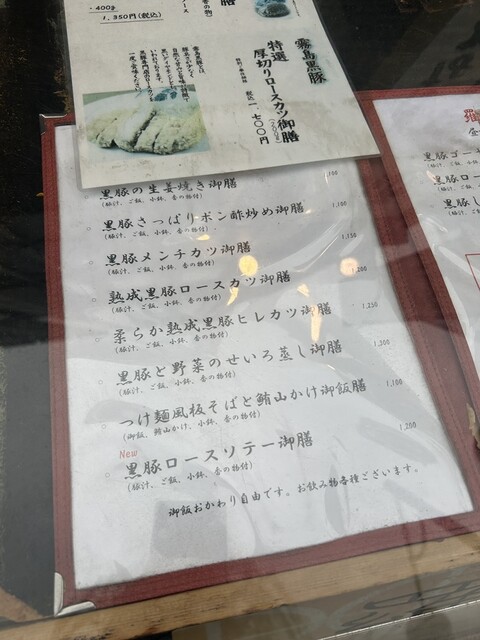 ・400g
1,350円(税込)
御膳
霧島黒豚
特選
厚切りロースカツ御膳
税込一、七〇〇円
霧島黒豚とは
一度ご賞味ください。
黒豚の生姜焼き御膳
(豚汁、ご飯、小鉢、香の物付)
黒豚さっぱりポン酢炒め御膳 1,100
(豚汁、ご飯、小鉢、香の物付)
黒豚メンチカツ御膳 1,150
(豚汁、ご飯、小鉢、香の物付)
熟成黒豚ロースカツ御膳
(豚汁、ご飯、小鉢、香の物付)
柔らか熟成黒豚ヒレカツ御膳 1,250
(豚汁、ご飯、小鉢、香の物付)
黒豚と野菜のせいろ蒸し御膳 1,300
(豚汁、ご飯、小鉢、香の物付)
つけ麺風板そばと鮪山かけ御飯膳 1,100
(御飯、鮪山かけ、小鉢、香の物付)
New
黒豚ロースソテー御膳 1,200
(豚汁、ご飯、小鉢、香の物付)
御飯おかわり自由です。お飲み物各種ございます。
黒豚ロー
黒豚し